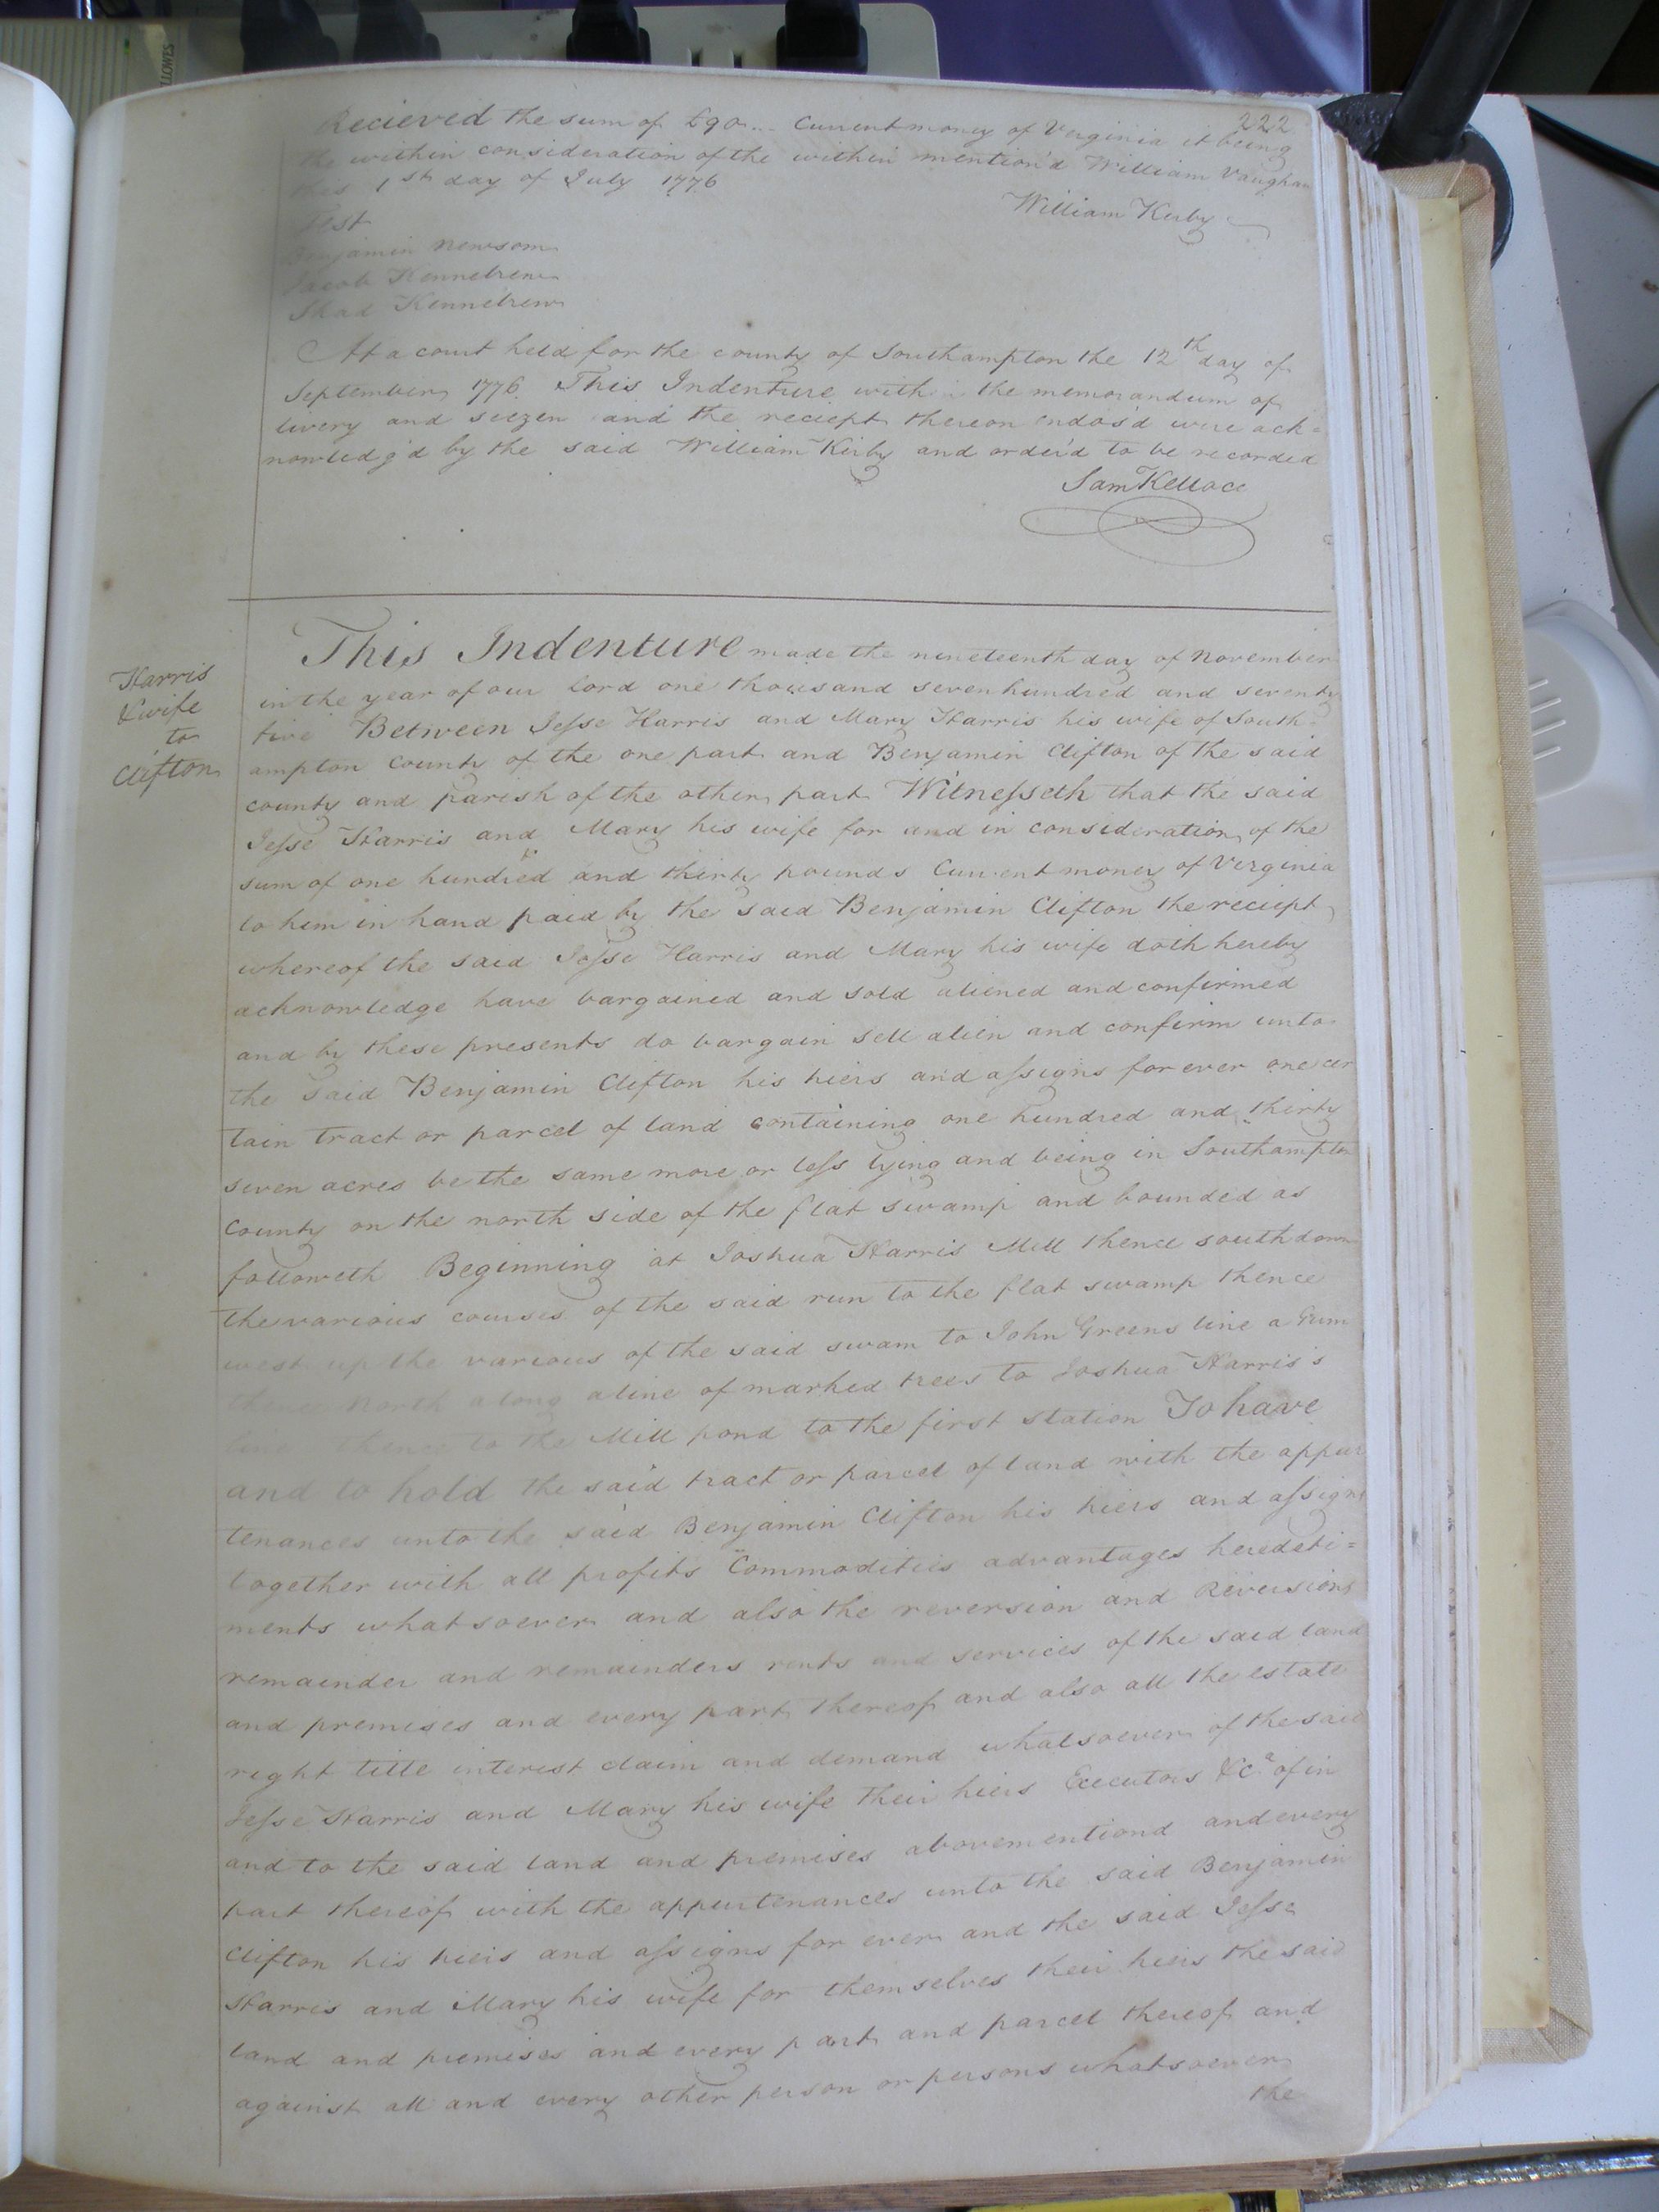 222
Recieved the sum of £90... Current money of Verginia it being
the within consideration of the within mention'd William Vaughan
this 1st day of July 1776
William Kirby
Test
Benjamin Newsom
Jacob Kennebrew
Shad Kennebrew
At a court held for the county of Southampton the 12th day of
September 1776 This Indenture with the memorandum of
livery and seezen and the reciept thereon endos'd were ack=
nowledg'd by the said William Kirby and order'd to be recorded
Sam Kello cc
Harris
& wife
to
Clifton
This Indenture made the nineteenth day of November
in the year of our lord one thousand seven hundred and seventy
five Between Jesse Harris and Mary Harris his wife of South=
ampton County of the one part and Benjamin Clifton of the said
county and parish of the other part Witnesseth that the said
Jesse Harris and Mary his wife for and in consideration of the
sum of one hundred and thirty pounds Current money of Virginia
to him in hand paid by the said Benjamin Clifton the reciept
whereof the said Jesse Harris and Mary his wife doth hereby
acknowledge have bargained and sold aliened and confirmed
and by these presents do bargain sell alien and confirm unto
the said Benjamin Clifton his hiers and assigns for ever one cer
tain tract or parcel of land containing one hundred and thirty
seven acres be the same more or less lying and being in Southampton
County on the north side of the flat swamp and bounded as
followeth Beginning at Joshua Harris Mill thence south down
the various courses of the said run to the flat swamp thence
west up the various of the said swam to John Greens line a Gum
thence North along a line of marked trees to Joshua Harris's
line thence to the Mill pond to the first station To have
and to hold the said tract or parcel of land with the appur
tenances unto the said Benjamin Clifton his hiers and assigns
together with all profits Commodities advantages heredeti=
ments whatsoever and also the reversion and Reversions
remainder and remainders rents and services of the said land
and premises and every part thereof and also all the estate
right title interest claim and demand whatsoever of the said
Jesse Harris and Mary his wife their hiers Executors &c.a of in
and to the said land and premises abovementiond and every
part thereof with the appurtenances unto the said Benjamin
Clifton his hiers and assigns for ever and the said Jesse
Harris and Mary his wife for themselves their hiers the said
land and premises and every part and parcel thereof and
against all and every other person or persons whatsoever
the